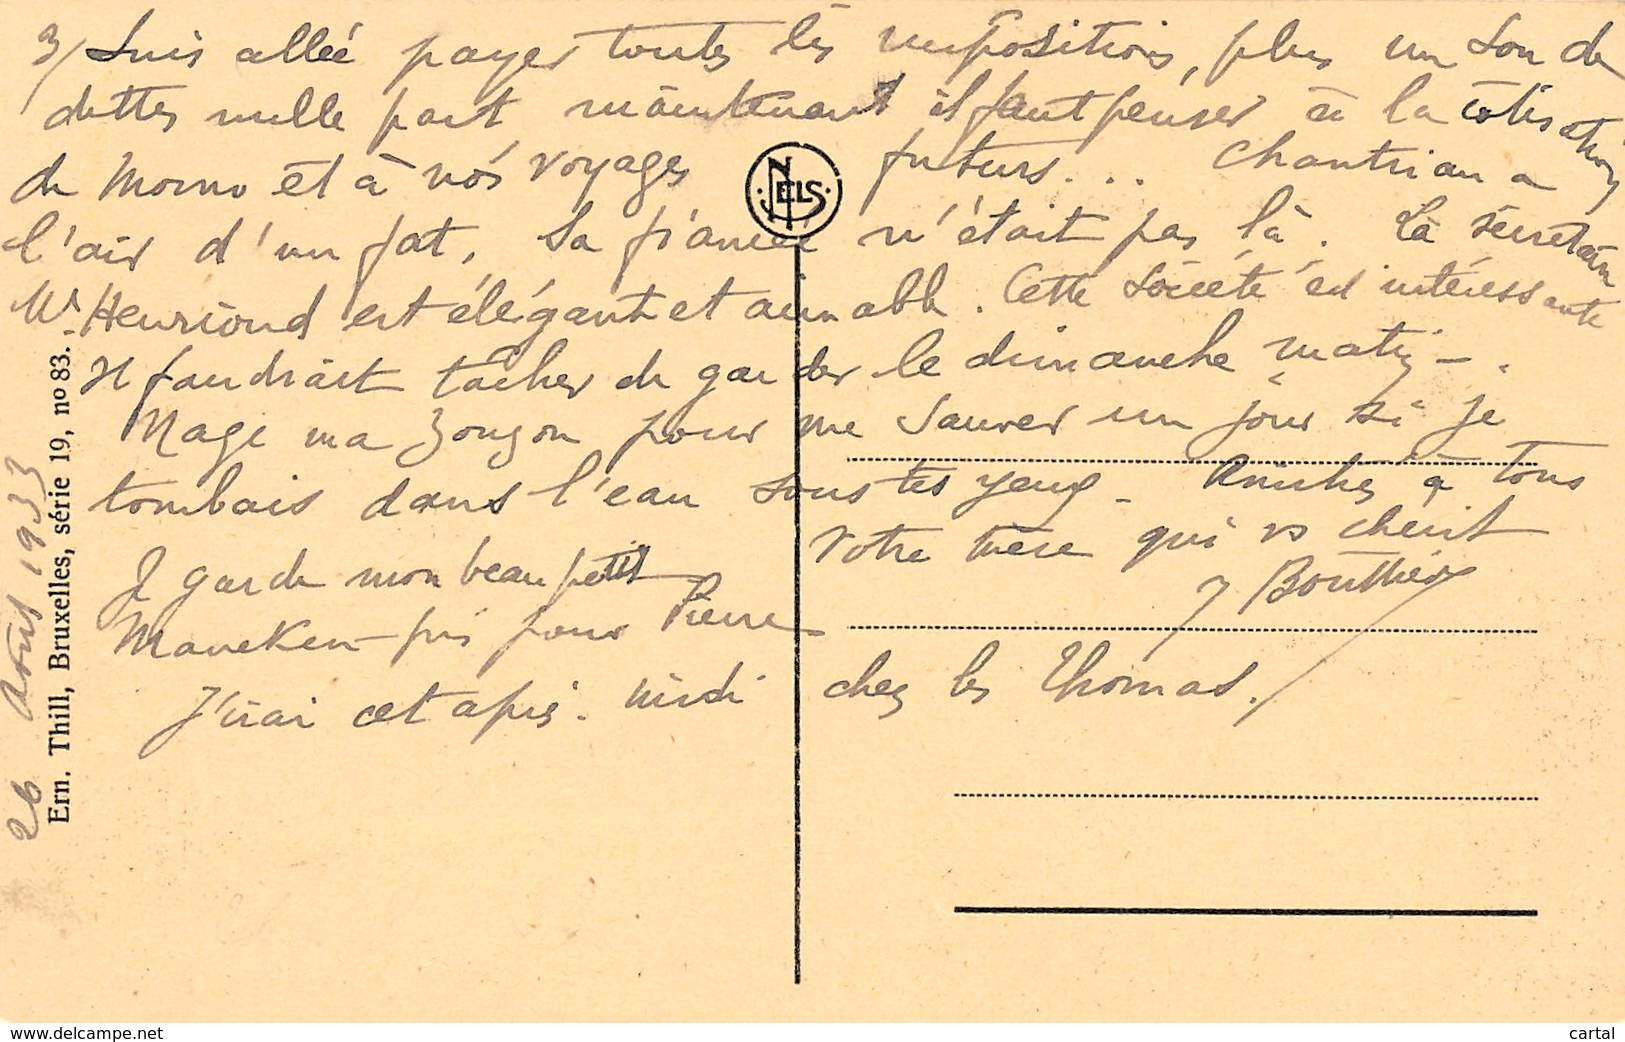 3/ Suis allée payer toutes les impositions, plus un sou de
dettes nulle part maintenant il faut penser à la cotisation
de Momo et à nos voyages futurs... Chantrian a
l'air d'un fat, sa fiancée n'était pas là. La secrétaire
Mr Henriond est élégante et aimable. Cette société est intéressante
Il faudrait tâcher de garder le dimanche matin.
Nage ma Zouzou pour me sauver un jour si je
tombais dans l'eau sous tes yeux - Amitiés à tous
votre mère qui vs chérit
J Bouthier
Je garde mon beau petit
Maneken-pis pour Pierre
J'irai cet après-midi chez les Thomas.
26 Août 1933
Ern. Thill, Bruxelles, série 19, no 83.
NELS
www.delcampe.net
cartal